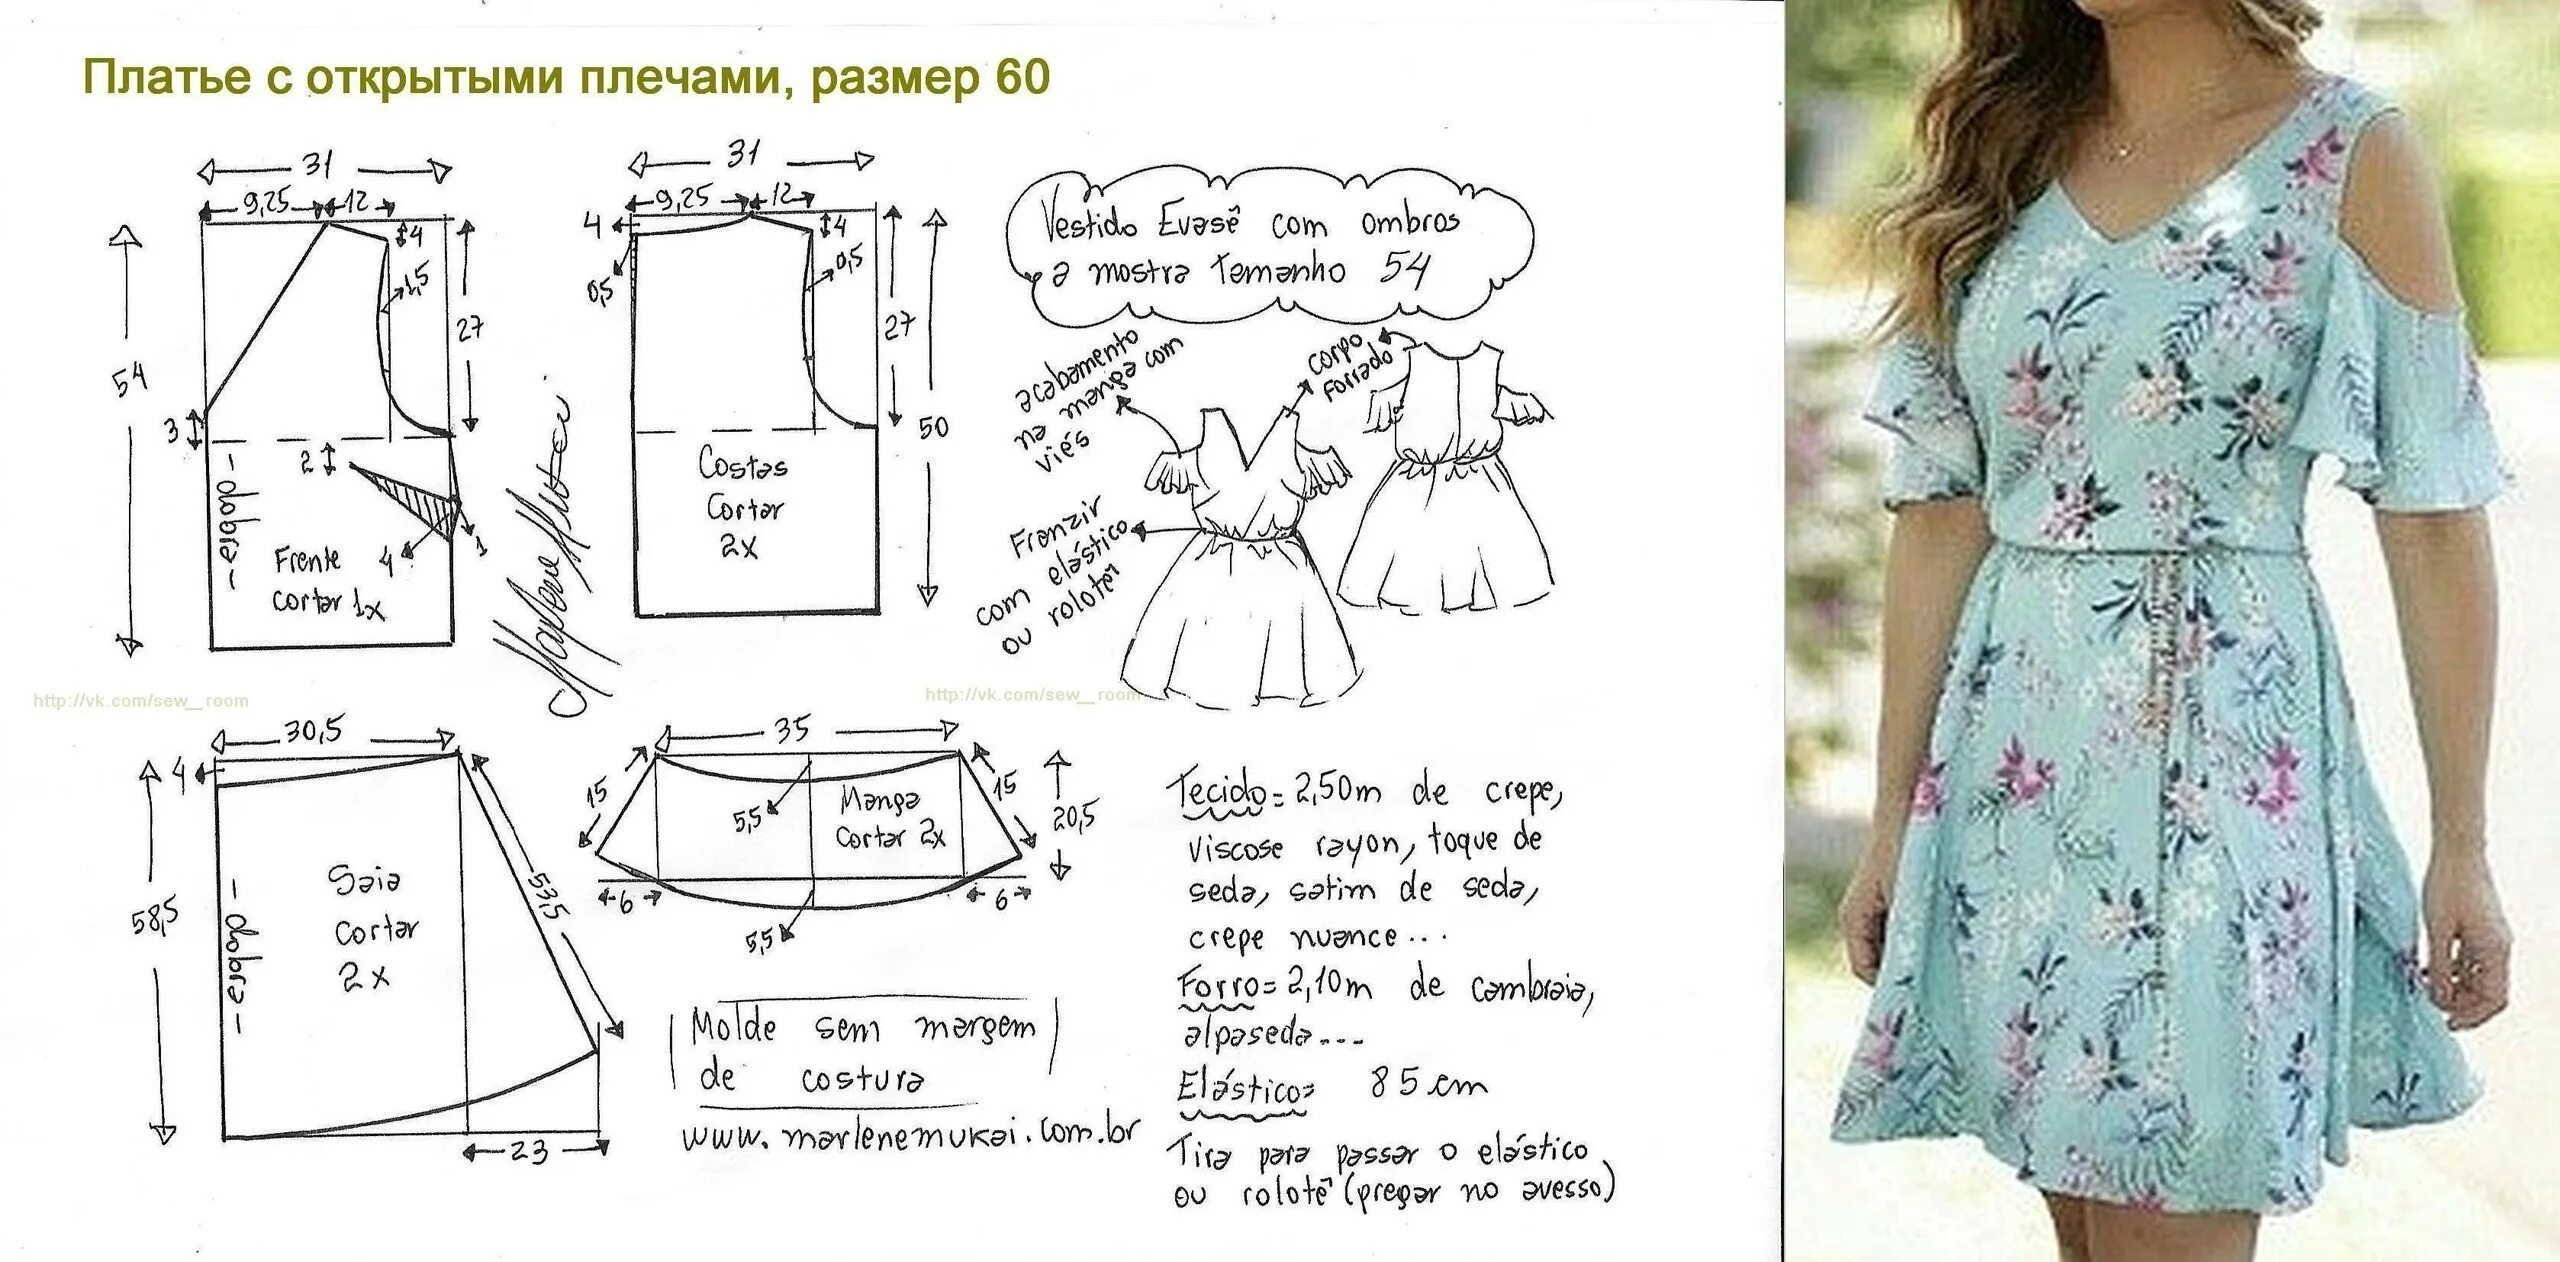 Платье с открытыми плечами, размер 60
31
9,25
12
4
1,5
27
54
3
2
-dobra-
Frente
cortar 1x
4
1
31
4
9,25
12
4
0,5
0,5
27
50
Costas
Cortar
2x
Vestido Evasê com ombros
a mostra Tamanho 54
acabamento
na manga com
viés
corpo
forrado
Franzir
com elástico
ou rolotê
http://vk.com/sew__room
http://vk.com/sew__room
30,5
4
58,5
-dobra-
Saia
cortar
2x
53,5
23
35
15
15
5,5
Manga
cortar 2x
20,5
6
6
5,5
Molde sem margem
de costura
www.marlenemukai.com.br
Tecido= 2,50m de crepe,
viscose rayon, toque de
seda, satim de seda,
crepe nuance...
Forro= 2,10m de cambraia,
alpaseda...
Elástico= 85cm
Tira para passar o elástico
ou rolotê (pregar no avesso)